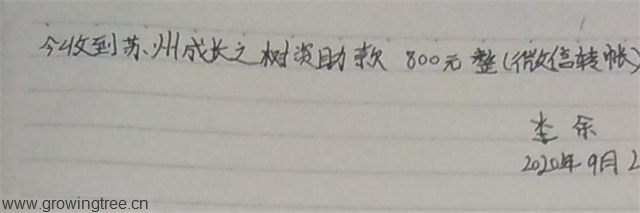 今收到苏州成长之树资助款 800元整(微信转帐)
李余
2020年9月2
www.growingtree.cn